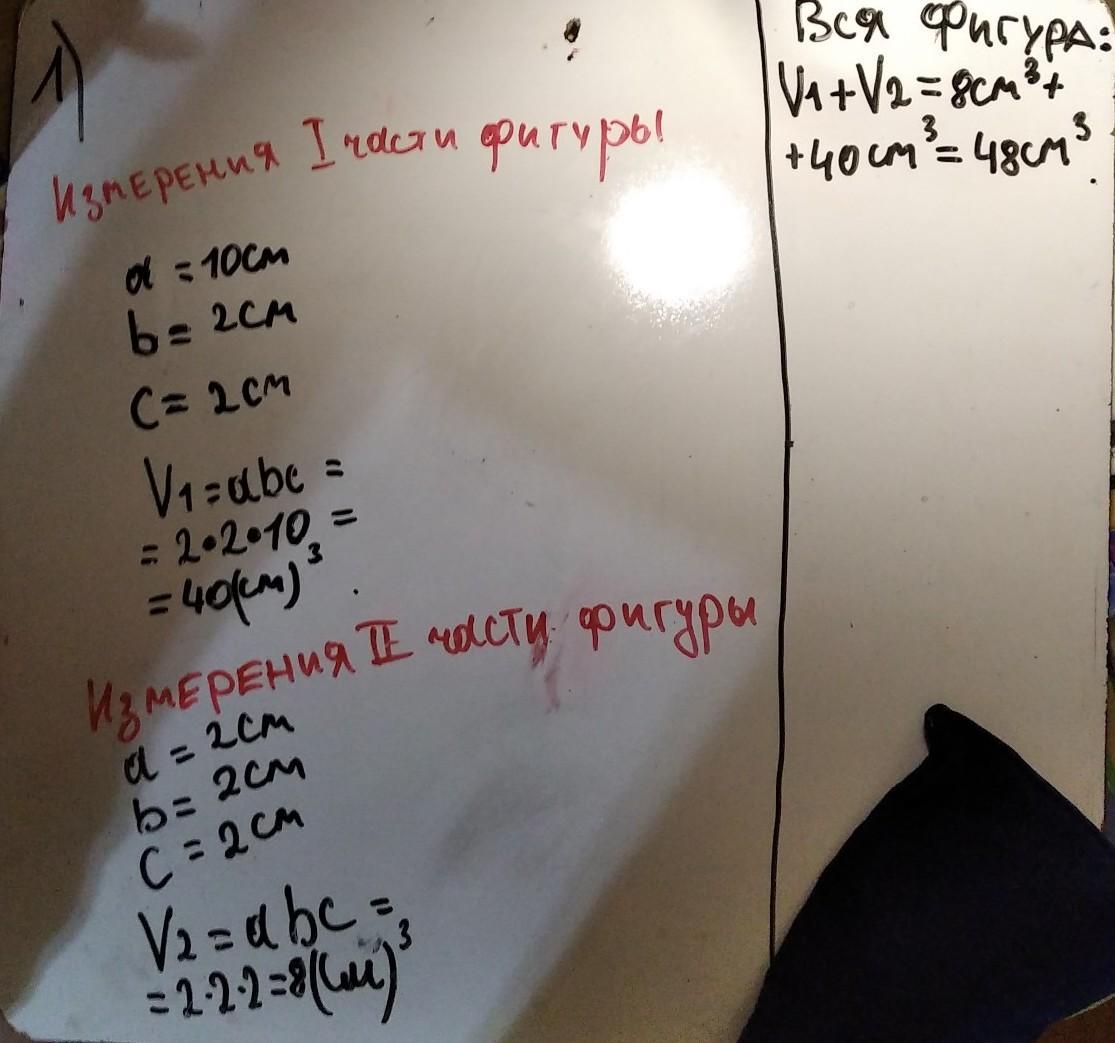 1)
Измерения I части фигуры
a = 10см
b = 2см
c = 2см
V1 = abc =
= 2•2•10 =
= 40(см)³.
Измерения II части фигуры
a = 2см
b = 2см
c = 2см
V2 = abc =
= 2·2·2=8(см)³
Вся фигура:
V1+V2 = 8см³+
+40см³ = 48см³.